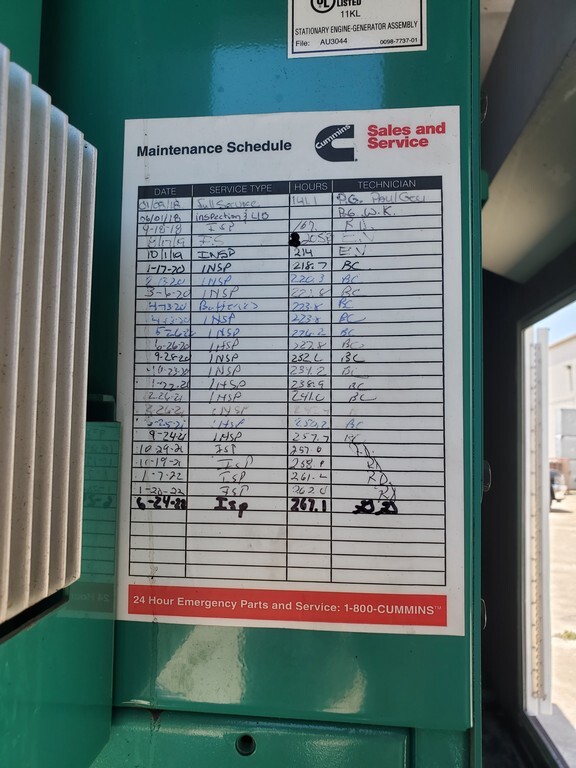 UL LISTED
11KL
STATIONARY ENGINE-GENERATOR ASSEMBLY
File: AU3044 0098-7737-01
Maintenance Schedule Cummins Sales and Service
DATE SERVICE TYPE HOURS TECHNICIAN
Full Service 141.1 P.G.
06/01/18 inspection & LLO P.G. W.K.
9-18-18 ISP 167. R.D.
E.V
10/1/19 INSP 214 E.V
1-17-20 INSP 218.7 BC
INSP 220.3 BC
3-6-20 INSP BC
4-13-20 Batteries 223.8 BC
INSP 223.8 BC
5-26-20 INSP 226.2 BC
6-26-20 INSP 227.8 BC
9-25-20 INSP 232.6 BC
10-23-20 INSP 234.2 BC
1-22-21 INSP 238.9 BC
2-26-21 INSP 241.0 BC
INSP
INSP 250.2 BC
9-24-21 INSP 257.7
10-29-21 ISP 257.0 R.D.
ISP R.D.
1-7-22 ISP R.D.
ISP 262.0 R.D.
6-24-22 Isp 267.1
24 Hour Emergency Parts and Service: 1-800-CUMMINS™